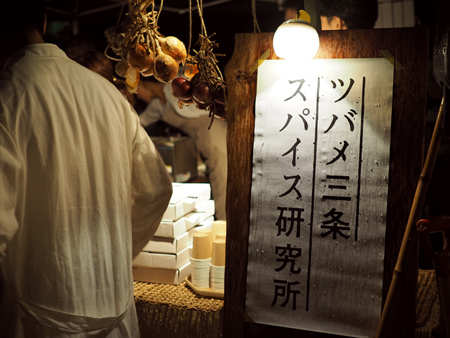 ツバメ三条
スパイス研究所